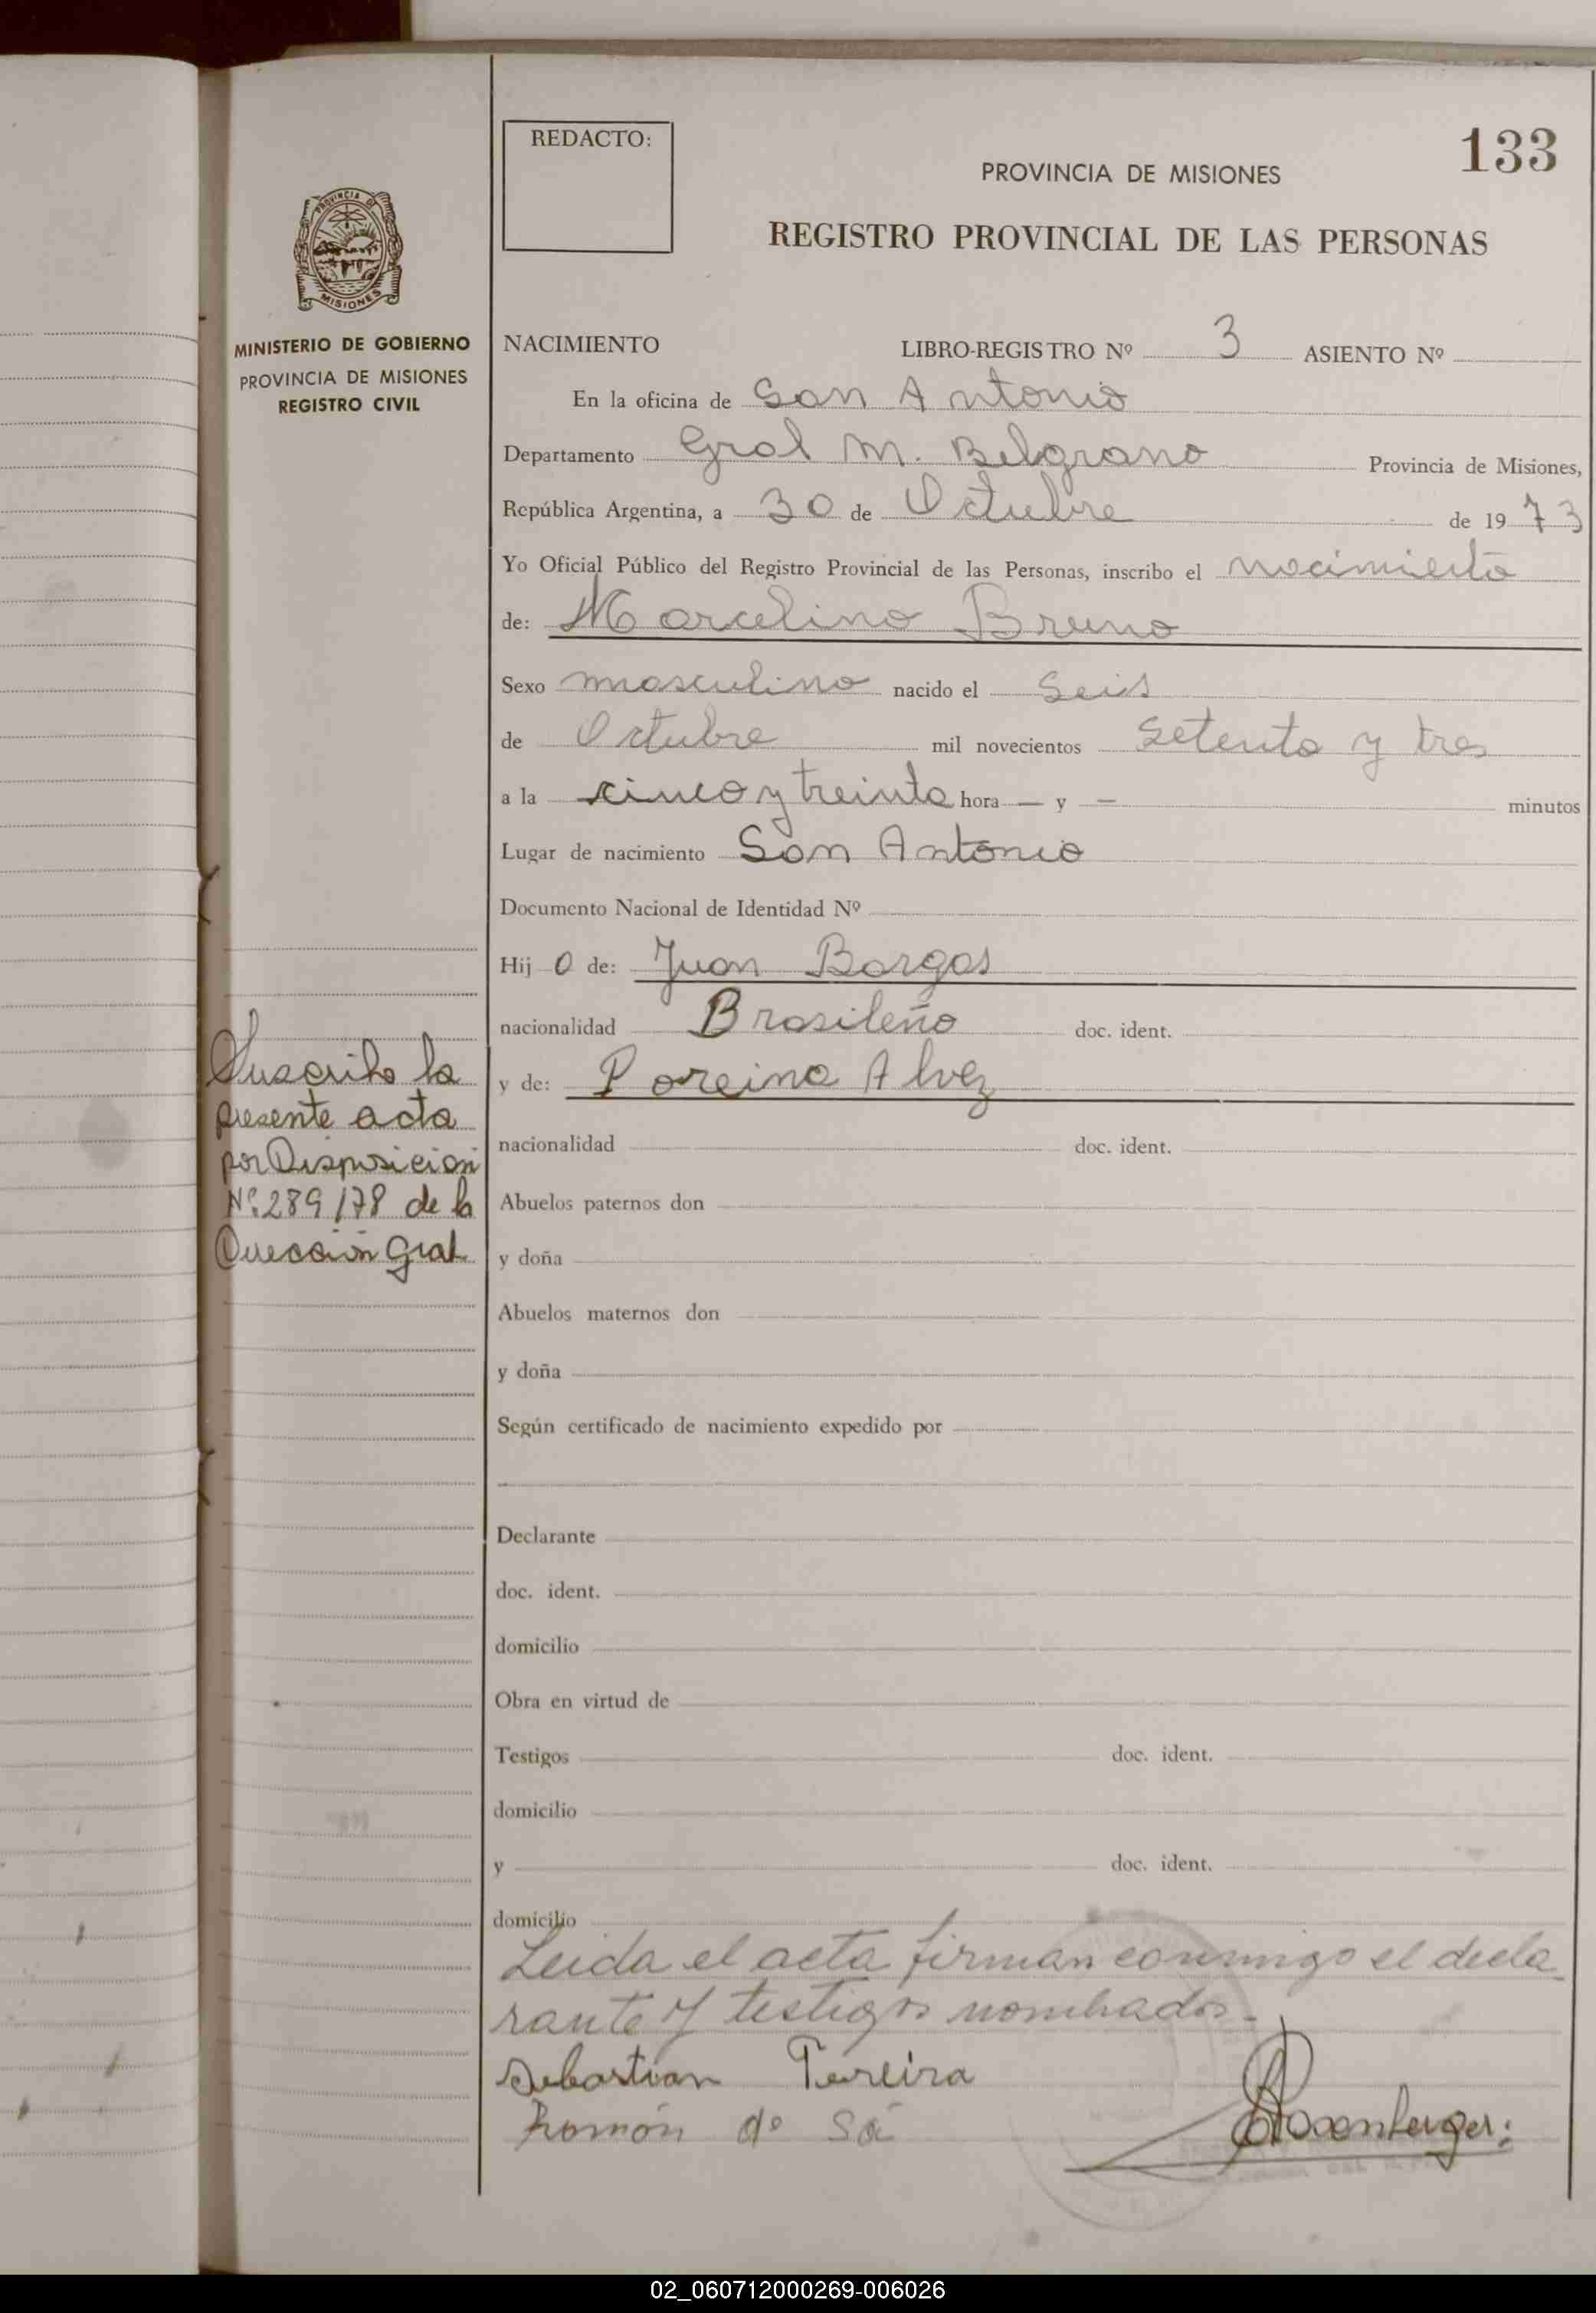 REDACTO:
133
PROVINCIA DE MISIONES
REGISTRO PROVINCIAL DE LAS PERSONAS
PROVINCIA DE
MISIONES
MINISTERIO DE GOBIERNO
PROVINCIA DE MISIONES
REGISTRO CIVIL
NACIMIENTO LIBRO-REGISTRO Nº 3 ASIENTO Nº
En la oficina de San Antonio
Departamento Gral M. Belgrano Provincia de Misiones,
República Argentina, a 30 de Octubre de 1973
Yo Oficial Público del Registro Provincial de las Personas, inscribo el nacimiento
de: Marcelino Bruno
Sexo masculino nacido el Seis
de Octubre mil novecientos setenta y tres
a la cinco y treinta hora — y — minutos
Lugar de nacimiento San Antonio
Documento Nacional de Identidad Nº
Hij o de: Juan Borgas
nacionalidad Brasileño doc. ident.
y de: Poreina Alvez
nacionalidad doc. ident.
Abuelos paternos don
y doña
Abuelos maternos don
y doña
Según certificado de nacimiento expedido por
Declarante
doc. ident.
domicilio
Obra en virtud de
Testigos doc. ident.
domicilio
y doc. ident.
domicilio
Leida el acta firman conmigo el decla
rante y testigos nombrados.-
Sebastian Pereira
Ramón de Sá
Suscribo la
presente acta
por Disposicion
Nº 289/78 de la
Dirección Gral
02_060712000269-006026